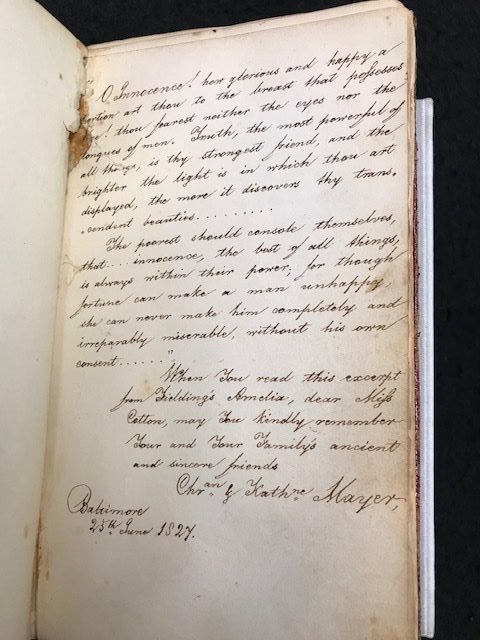 O Innocence! how glorious and happy a
portion art thou to the breast that possesses
thou fearest neither the eyes nor the
tongues of men. Truth, the most powerful of
all things, is thy strongest friend, and the
brighter the light is in which thou art
displayed, the more it discovers thy trans-
-cendent beauties.........
The poorest should console themselves,
that... innocence, the best of all things,
is always within their power; for though
fortune can make a man unhappy,
she can never make him completely and
irreparably miserable, without his own
consent......"
When You read this excerpt
from Fielding's Amelia, dear Miss
Cotton, may You kindly remember
Your and Your Family's ancient
and sincere friends
Chr.an & Kath.ne Mayer,
Baltimore
25th June 1827.